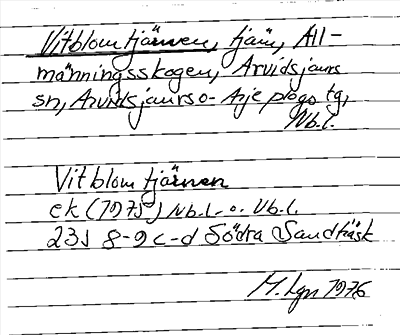 Vitblomtjärnen, tjärn, All-
männingsskogen, Arvidsjaurs
sn, Arvidsjaurs o. Arjeplogs tg,
Nb.l.
Vitblomtjärnen
ek (1975) Nb.l. o. Vb.l.
23J 8-9 c-d Södra Sandträsk
M. Lgn 1976